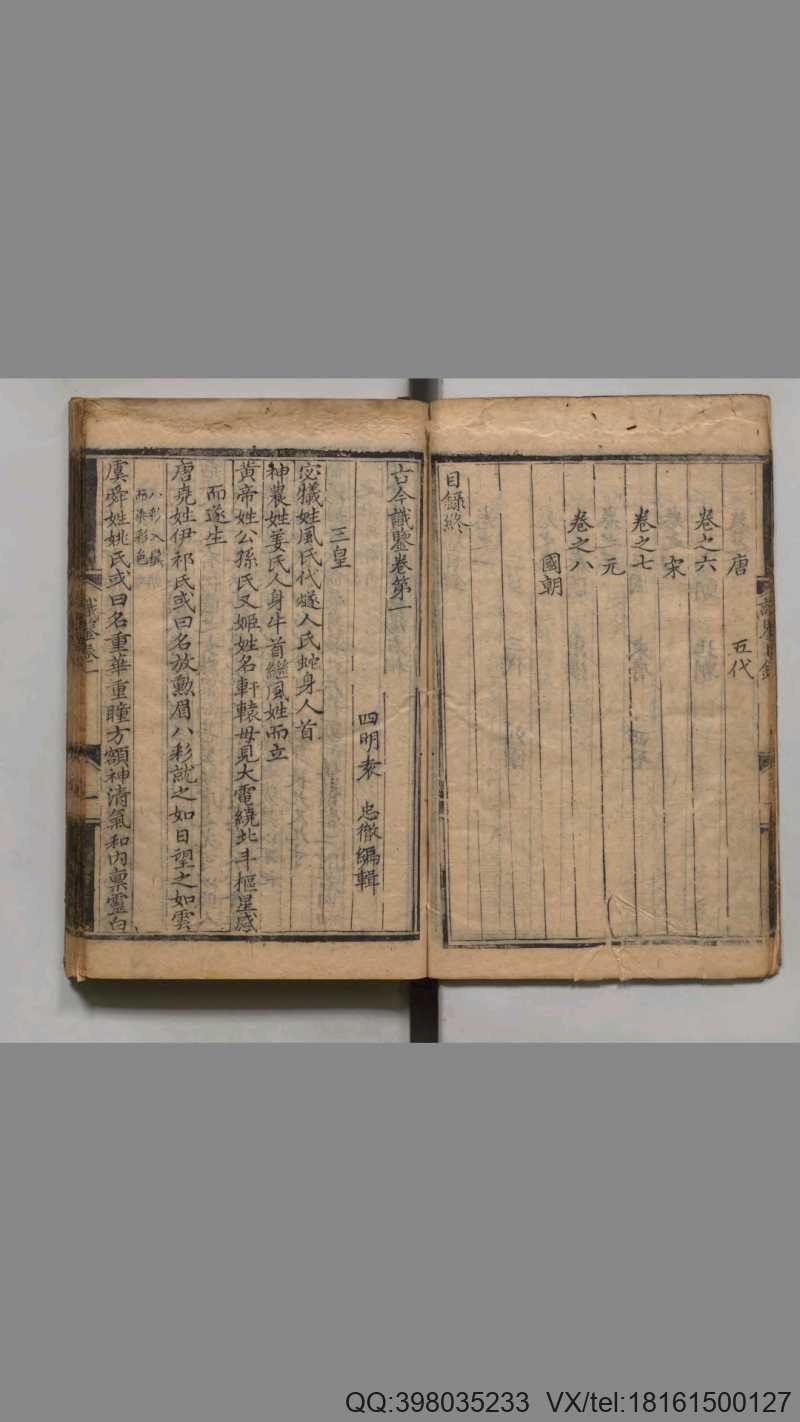 唐　五代
卷之六
宋
卷之七
元
卷之八
國朝
目錄終
古今識鑒卷第一
四明袁　忠徹編輯
三皇
宓犧姓風氏代燧人氏蛇身人首
神農姓姜氏人身牛首繼風姓而立
黃帝姓公孫氏又姬姓名軒轅母見大電繞北斗樞星感
而遂生
唐堯姓伊祁氏或曰名放勳眉八彩就之如日望之如雲
八彩入鬢
而染彩色
虞舜姓姚氏或曰名重華重瞳方額神清氣和內稟靈白
識鑒卷一
QQ:398035233 VX/tel:18161500127